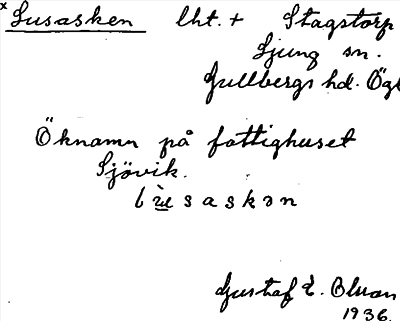 x Lusasken lht. + Stagstorp
Ljung sn.
Gullbergs hd. Ögl
Öknamn på fattighuset
Sjövik.
saskən
Gustaf E.
1936.